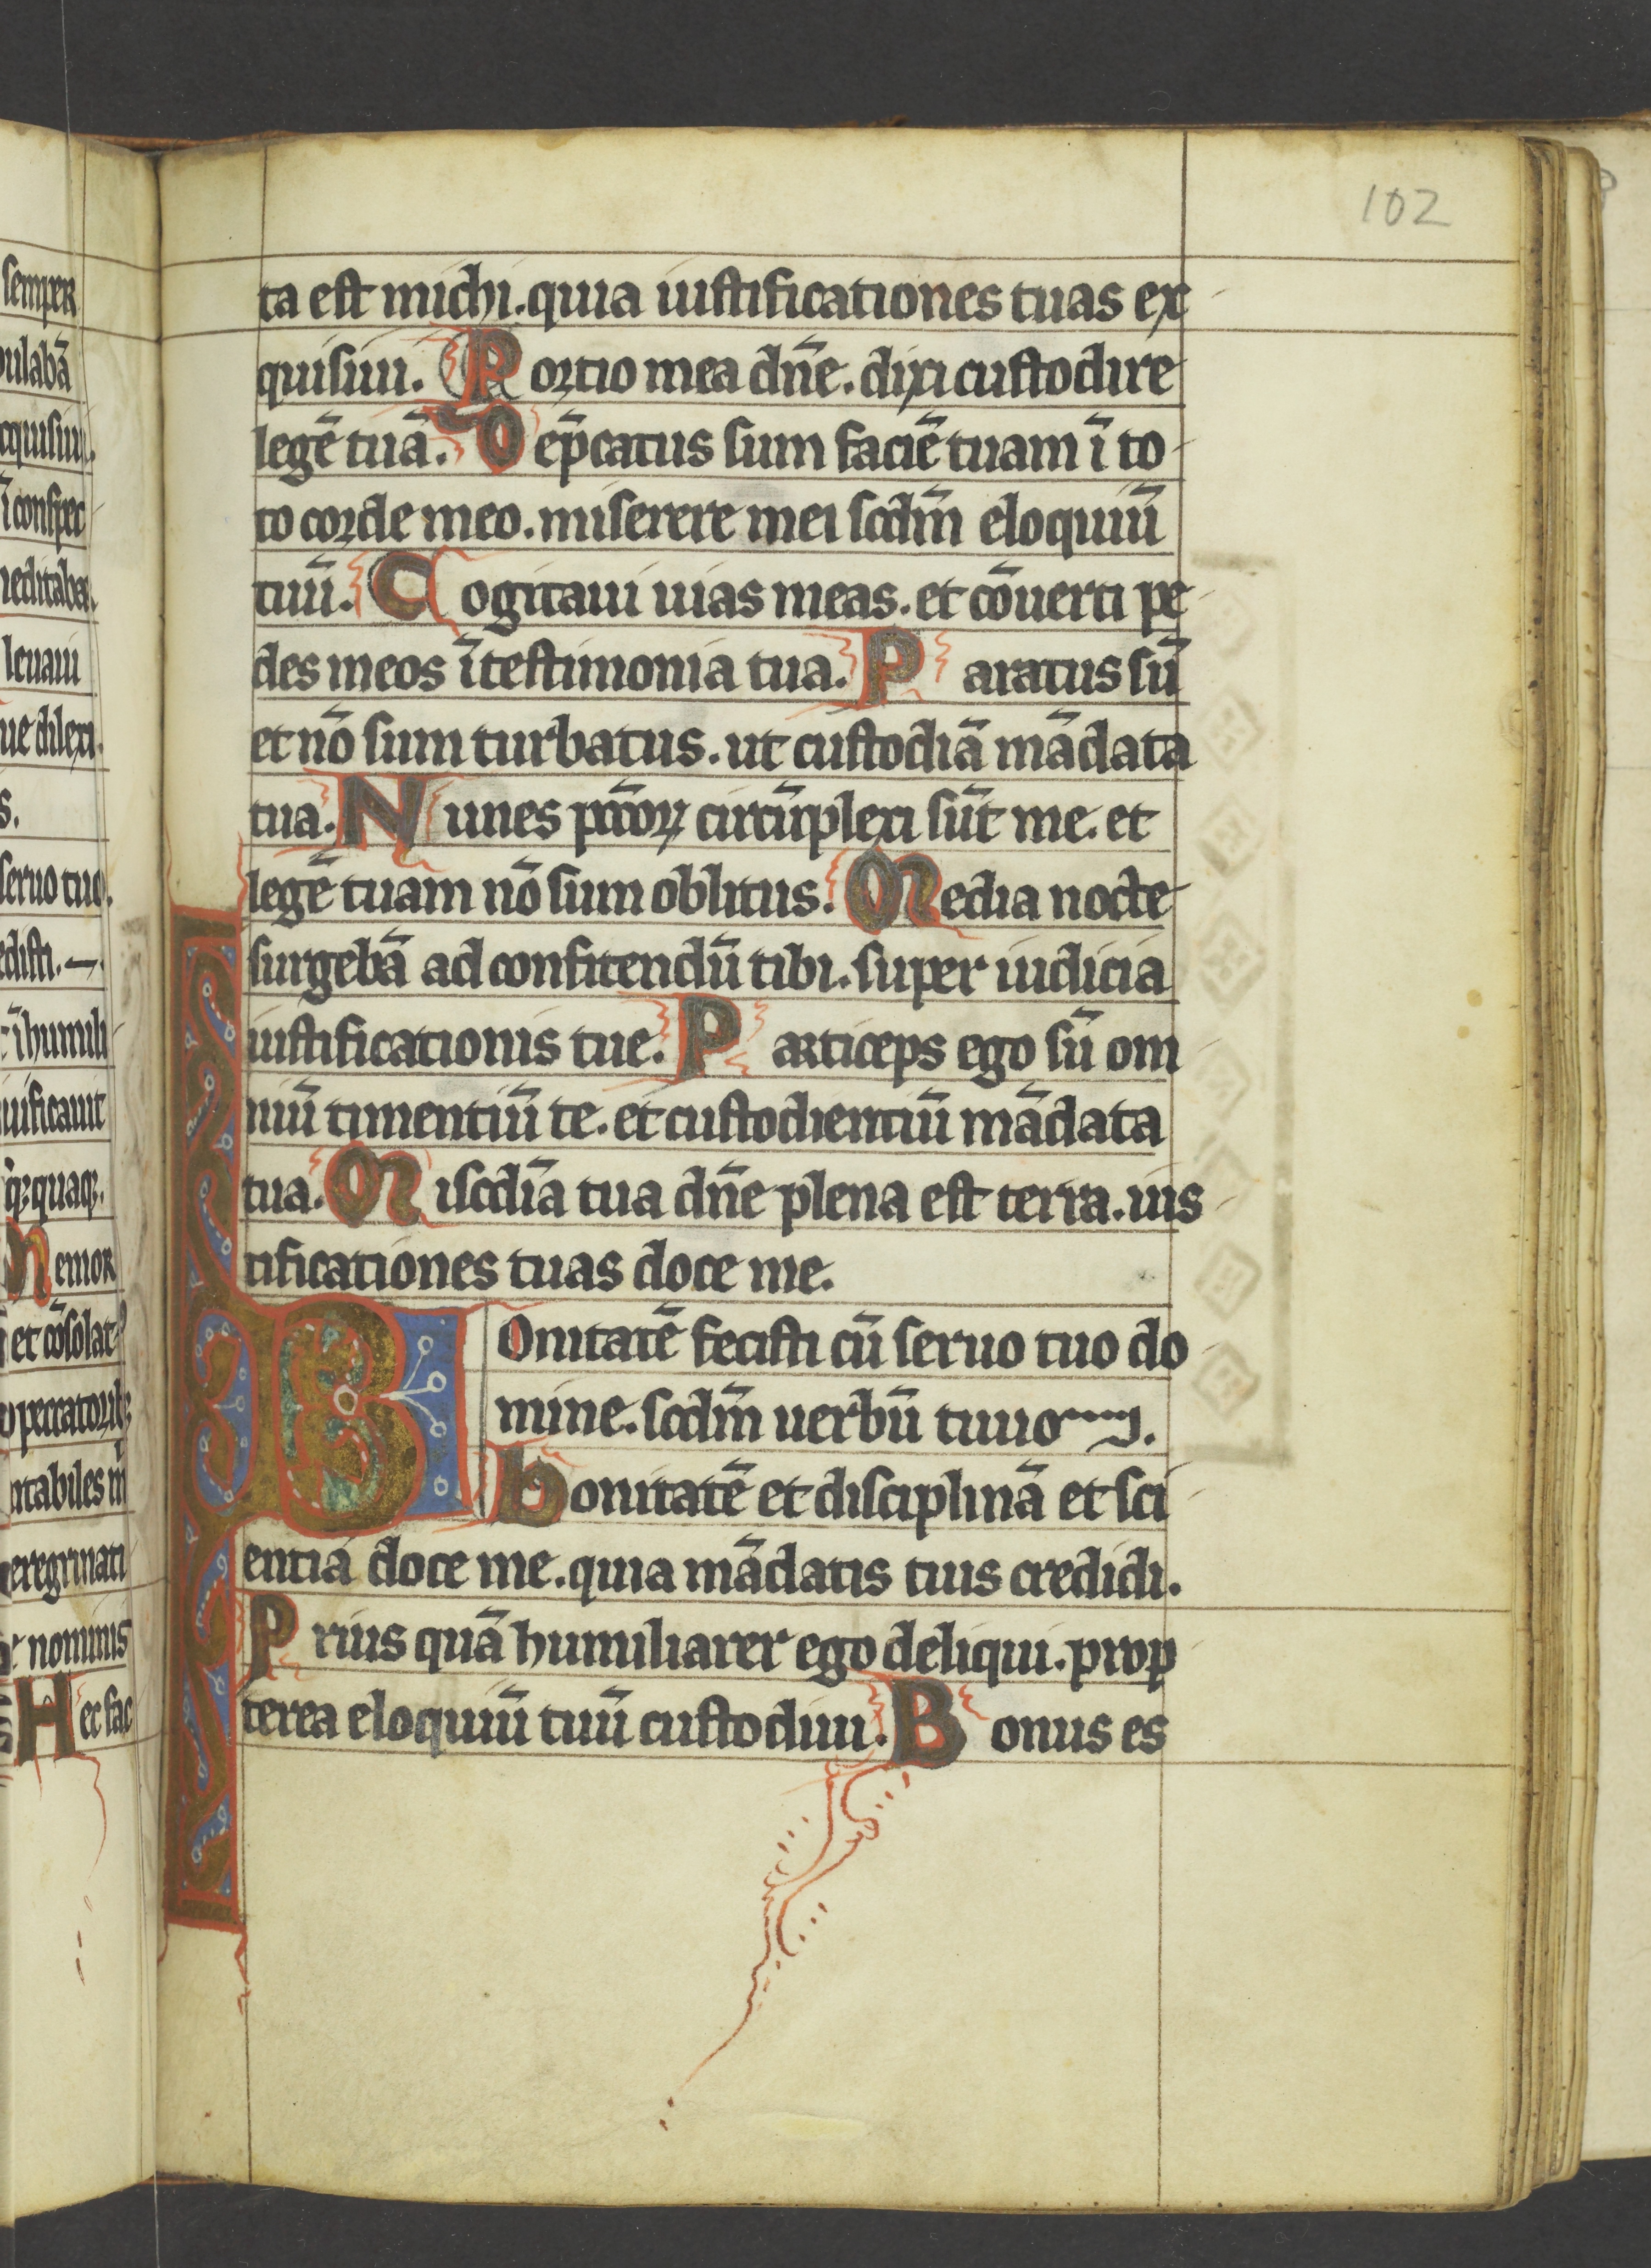 102
ta est michi. quia iustificationes tuas ex
quisiui. Portio mea dn̄e. dixi custodire
legē tuā. Dep̄catus sum faciē tuam ī to
to corde meo. miserere mei scdm̄ eloquiū
tuū. Cogitaui uias meas. et cōuerti pe
des meos ī testimonia tua. Paratus sū
et nō sum turbatus. ut custodiā mādata
tua. Nunes pc̄coꝝ circūplexi sūt me. et
legē tuam nō sum oblitus. Media nocte
surgebā ad confitendū tibi. super iudicia
iustificationis tue. Particeps ego sū om
niū timentiū te. et custodientiū mādata
tua. Miscdīa tua dn̄e plena est terra. uis
tificationes tuas doce me.
BOnitatē fecisti cū seruo tuo do
mine. scdm̄ uerbū tuuo.
Bonitatē et disciplinā et sci
entiā doce me. quia mādatis tuis credidi.
Prius quā humiliarer ego deliqui. prop
terea eloquiū tuū custodiui. Bonus es
semper
ulabā
ī conspec
leuaui
dilexi.
s.
seruo tuo.
ī humili
uificauit
Memor
et cōsolat
peccatorib;
eregrinati
nominis
Hec fac